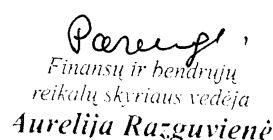 Parengė
Finansų ir bendrųjų
reikalų skyriaus vedėja
Aurelija Razguvienė